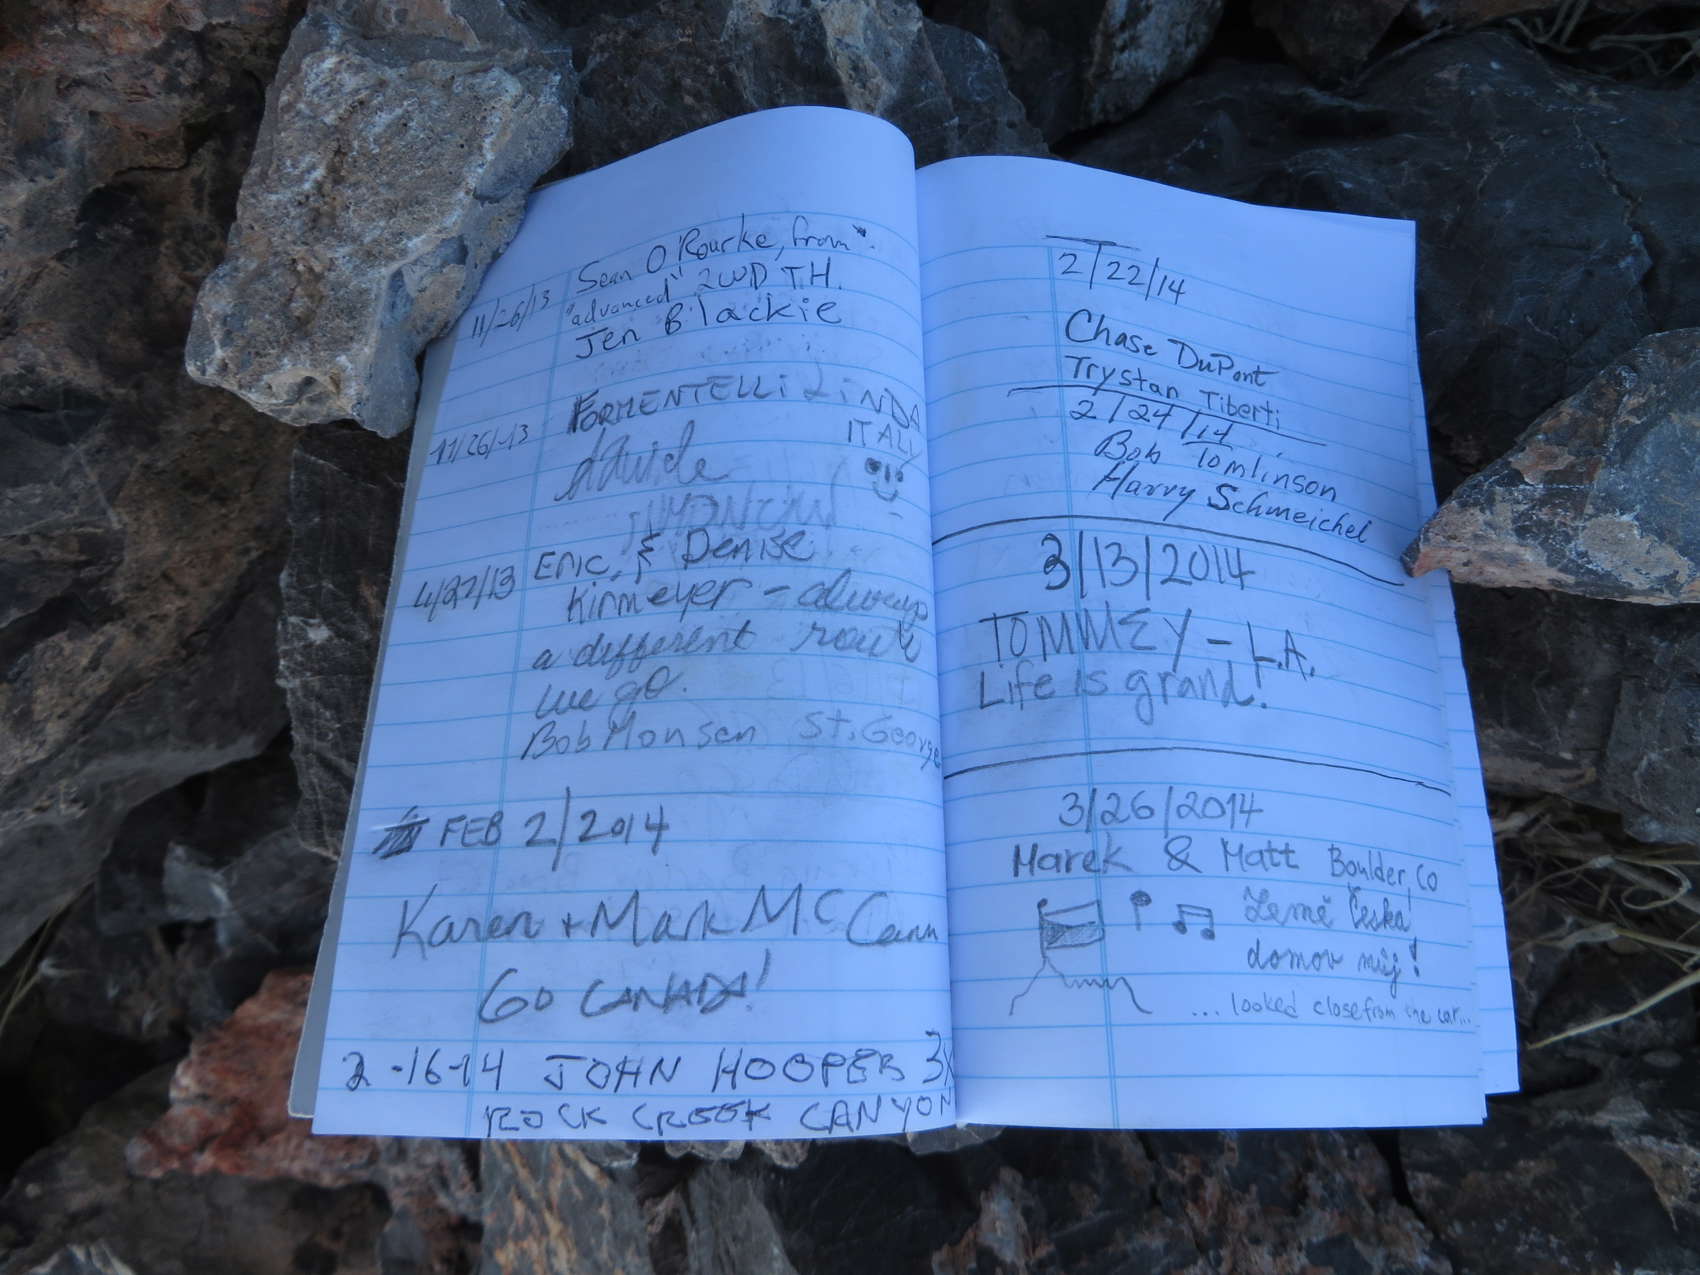 Sean O'Rourke, from
11/26/13 "advanced" 2WD T.H.
Jen Blackie
FORMENTELLI LINDA
ITALY
11/26/-13 davide
Eric & Denise
4/27/13 Kirmeyer - always
a different route
we go.
Bob Monsen St. George
FEB 2/2014
Karen + Mark McCann
GO CANADA!
2-16-14 JOHN HOOPER 3X
ROCK CREEK CANYON
2/22/14
Chase DuPont
Trystan Tiberti
2/24/14
Bob Tomlinson
Harry Schmeichel
3/13/2014
TOMMEY - L.A.
Life is grand!
3/26/2014
Marek & Matt Boulder, CO
Země Česká
domov můj!
... looked close from the car...